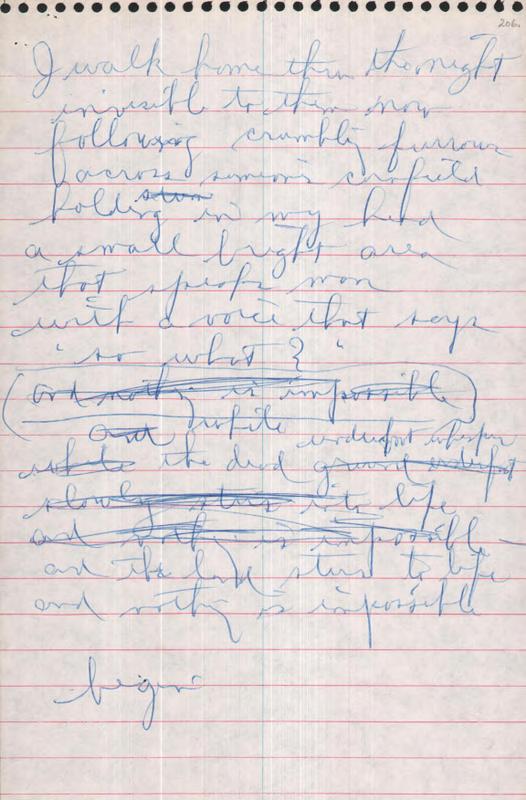 206.
I walk home thru the night
invisible to them now
following crumbling furrows
across someone's cornfield
holding in my head
a small bright area
that speaks man
with a voice that says
"so what?"
(and nothing is impossible)
and while underfoot whisper
while the dead ground underfoot
slowly stirs into life
and nothing is impossible —
and the land stirs to life
and nothing is impossible
begin